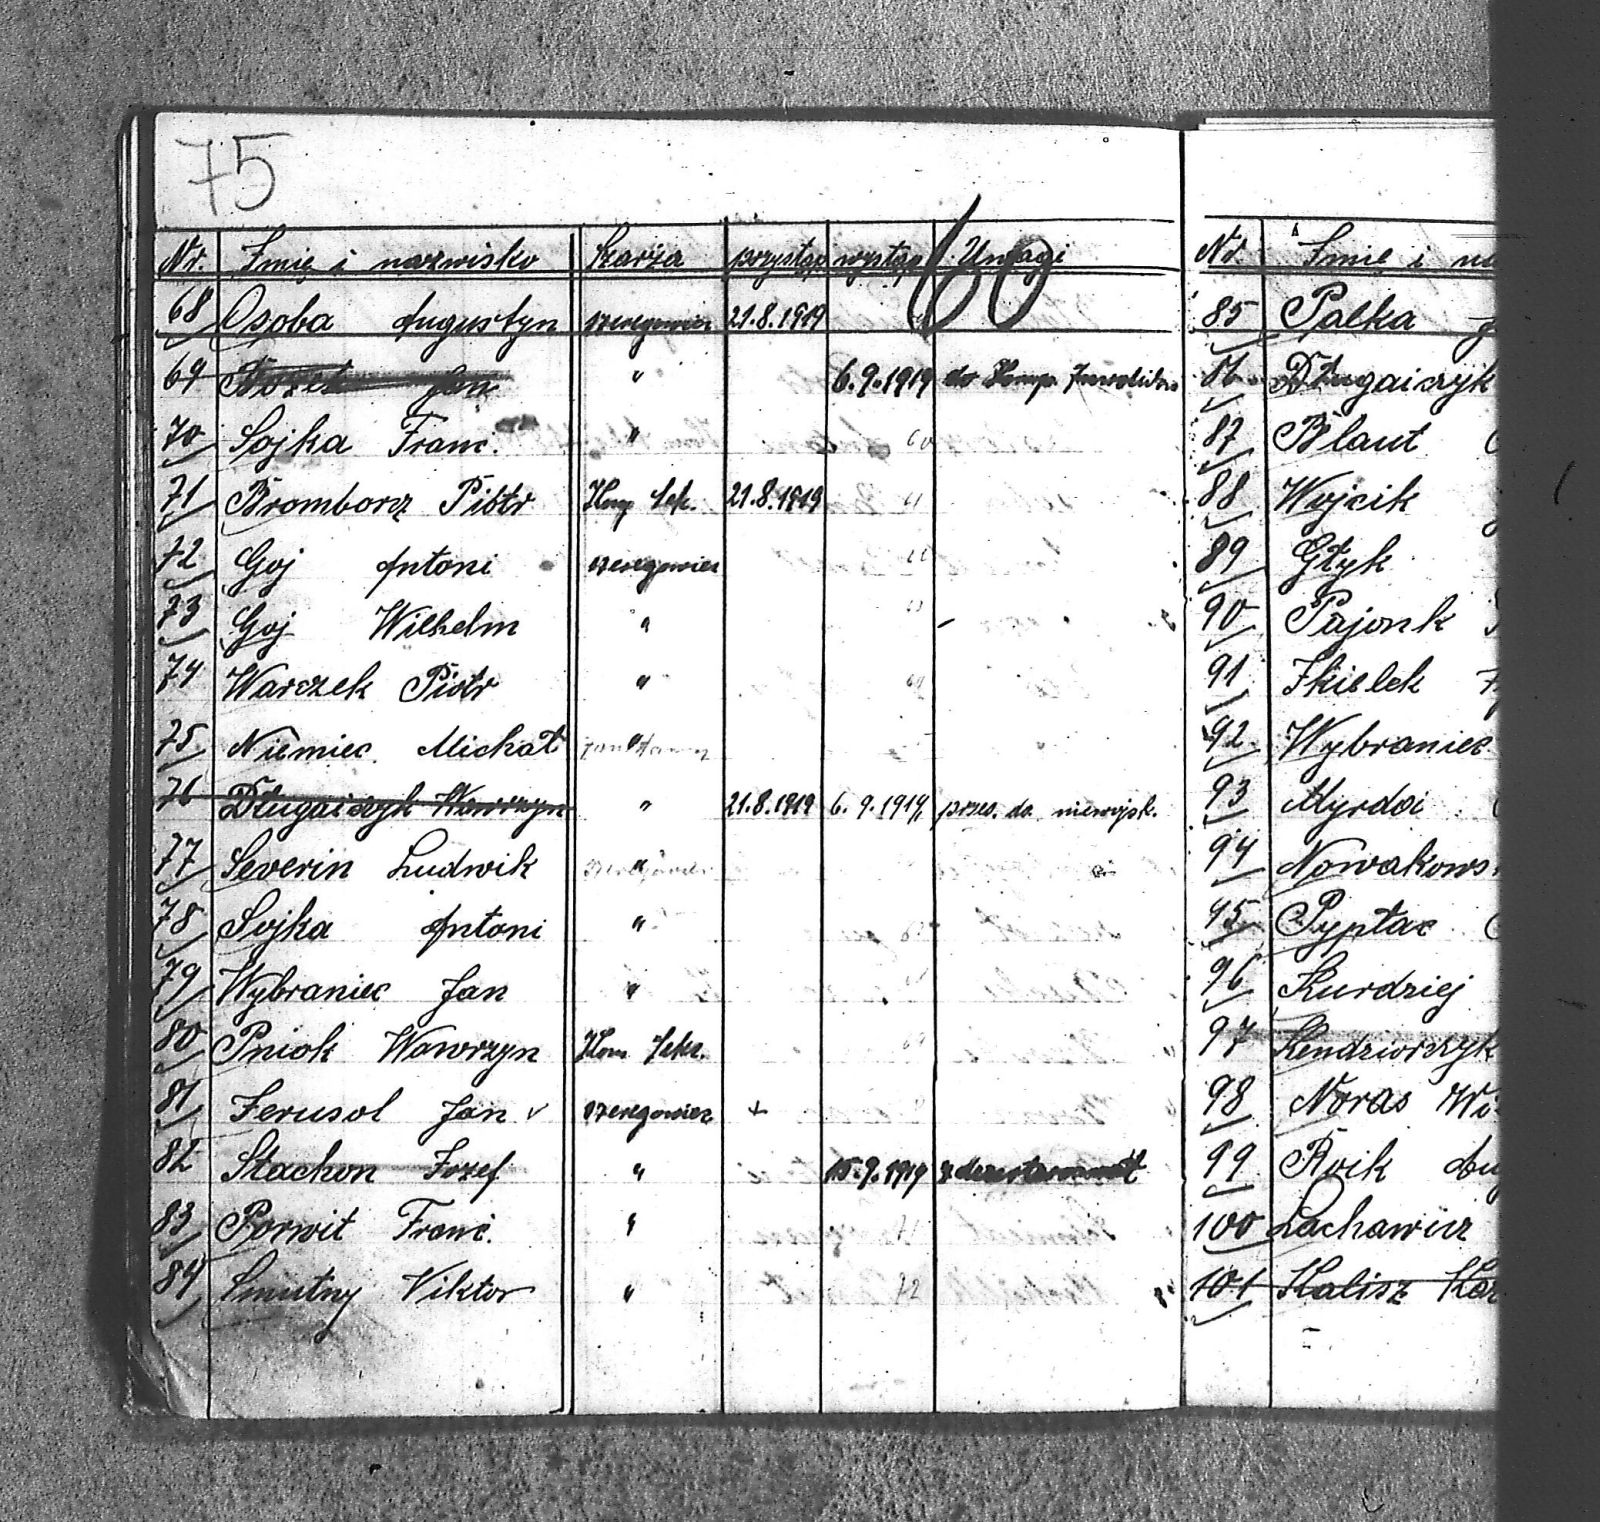 75
60
Nr. Imię i nazwisko Szarża przystąp wystąp Uwagi
68 Osoba Augustyn szeregowiec 21.8.1919
69 Jan " 6.9.1919 do Komp.
70 Sojka Franc. "
71 Bromborz Piotr Komp 21.8.1919
72 Goj Antoni szeregowiec
73 Goj Wilhelm "
74 Warszek Piotr "
75 Niemiec Michał "
76 Długaiczyk Wawrzyn " 21.8.1919 6.9.1919 przes. do niewojsk.
77 Severin Ludwik "
78 Sojka Antoni "
79 Wybraniec Jan "
80 Pniok Wawrzyn
81 Ferusol Jan v szeregowiec +
82 Stachon Jozef " 15.9.1919 zdezerterował
83 Porwit Franc. " 71
84 Smutny Viktor " 72
Nr Imię i na
85 Palka J
86 Długaiczyk
87 Blaut
88 Wojcik
89 Głyk
90 Pajonk
91 Skielek
92 Wybraniec
93 Myrdoi
94 Nowakows
95 Pyptac
96 Kurdziej
97 Kendziorczyk
98 Noras Wi
99 Kroik Aug
100 Lachawicz
101 Kalisz Kar